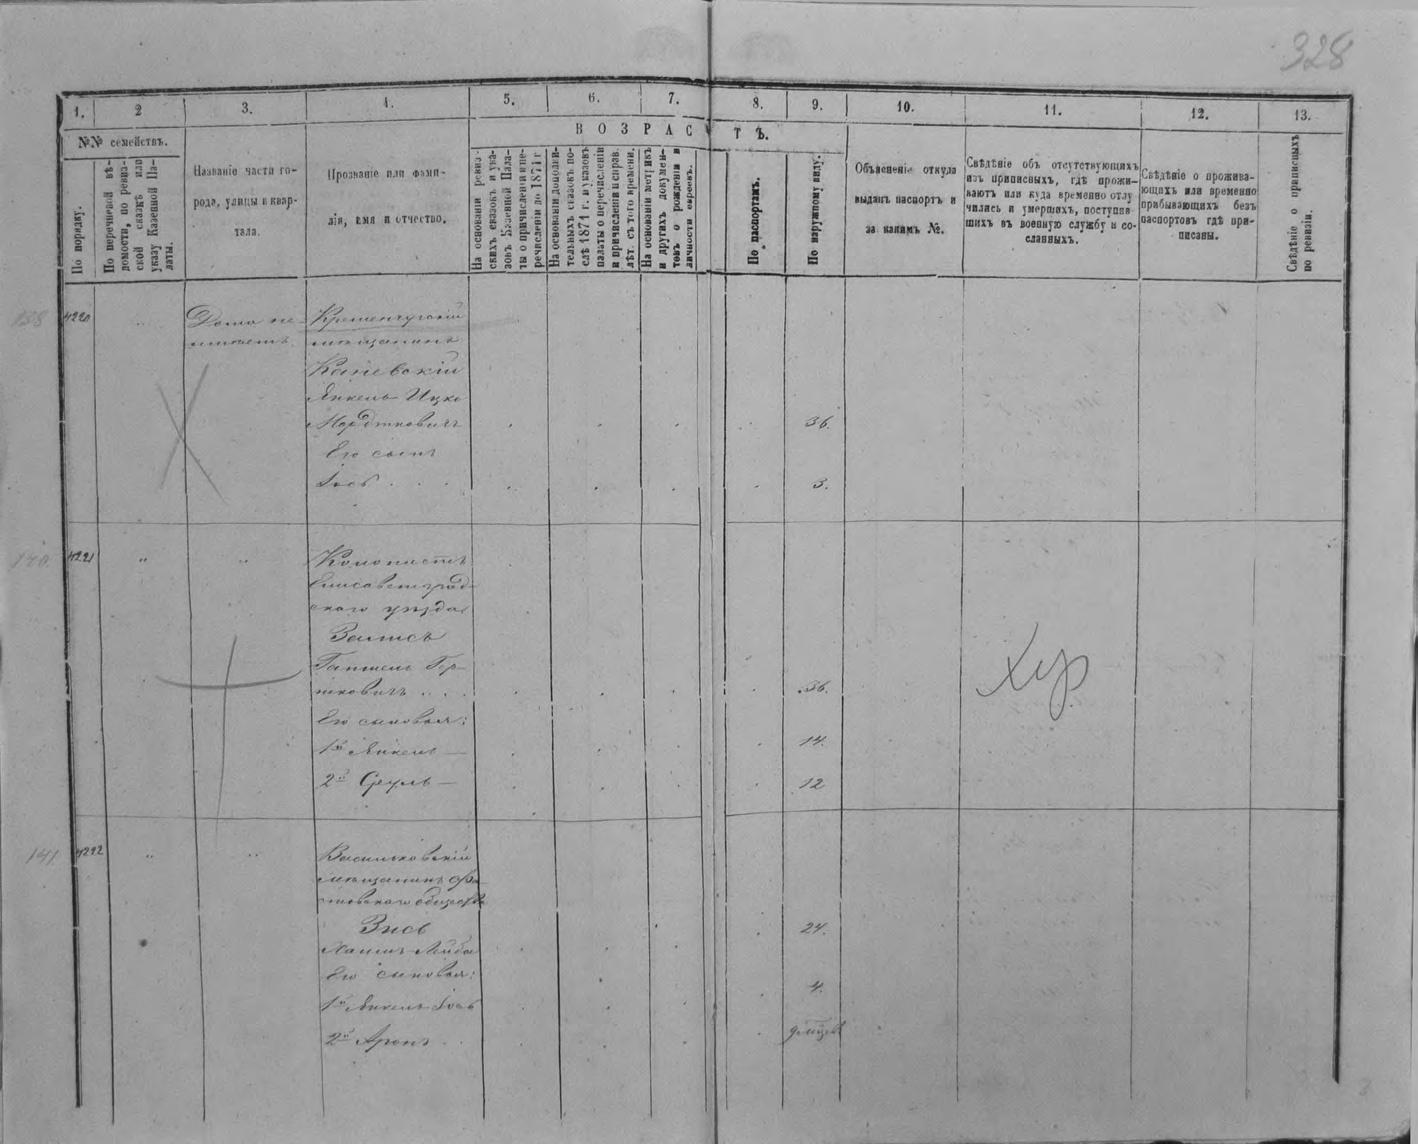 328
1. 2 3. 4. 5. 6. 7. 8. 9. 10. 11. 12. 13.
№№ семействъ.
По порядку.
По перечневой вѣ-
домости, по ревиз-
ской сказкѣ или
указу Казенной Па-
латы.
Названіе части го-
рода, улицы и квар-
тала.
Прозваніе или фами-
лія, имя и отчество.
ВОЗРАСТЪ.
На основаніи ревиз-
скихъ сказокъ и ука-
зовъ Казенной Пала-
ты о причисленіи и пе-
речисленіи до 1871 г
На основаніи дополни-
тельныхъ сказокъ по-
слѣ 1871 г. и указовъ
палаты о перечисленіи
и причисленіи и справ.
лѣт. съ того времени.
На основаніи метрикъ
и другихъ докумен-
товъ о рожденіи и
личности евреевъ.
По паспортамъ.
По наружному виду.
Объясненіе откуда
выданъ паспортъ и
за какимъ №.
Свѣдѣніе объ отсутствующихъ
изъ приписныхъ, гдѣ прожи-
ваютъ или куда временно отлу
чились и умершихъ, поступив
шихъ въ военную службу и со-
сланныхъ.
Свѣдѣніе о прожива-
ющихъ или временно
прибывающихъ безъ
паспортовъ гдѣ при-
писаны.
Свѣдѣніе о приписныхъ
по ревизіи.
138 4220 Дома не Кременчугскій
имѣетъ. мѣщанинъ
Каневскій
Янкель Ицко
Мордтковичъ 36.
Его сынъ
Іось 3.
140 4221 Колонистъ
Елисаветград-
скаго уѣзда
Залисъ
Гершковичъ 36.
Его сыновья:
1й Янкель 14.
2й Сруль 12
Хер
141 4222 Васильковскій
мѣщанинъ Фа-
стовскаго общества
Зисъ 24.
Хаимъ Лейба
Его сыновья: 4.
1й Янкель Іось
2й Аронъ 9 мѣсяц